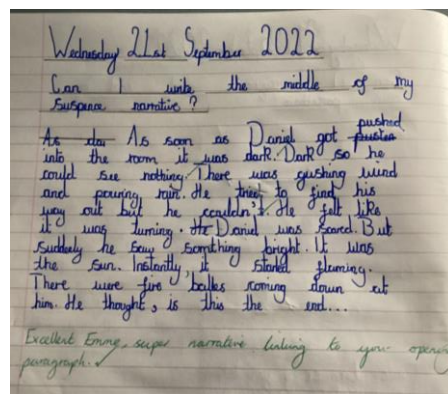 Wednesday 21st September 2022
Can I write the middle of my
suspence narrative?
pushed
As dar As soon as Daniel got pustes
into the room it was dark. Dark so he
could see nothing. There was gushing wind
and pouring rain. He tried to find his
way out but he couldn't. He felt like
it was turning. He Daniel was scared. But
suddenly he saw somthing bright. It was
the sun. Instantly, it started flaming.
There were fire balles coming down at
him. He thought, is this the end...
Excellent Emma, super narrative linking to your opening
paragraph. ✓